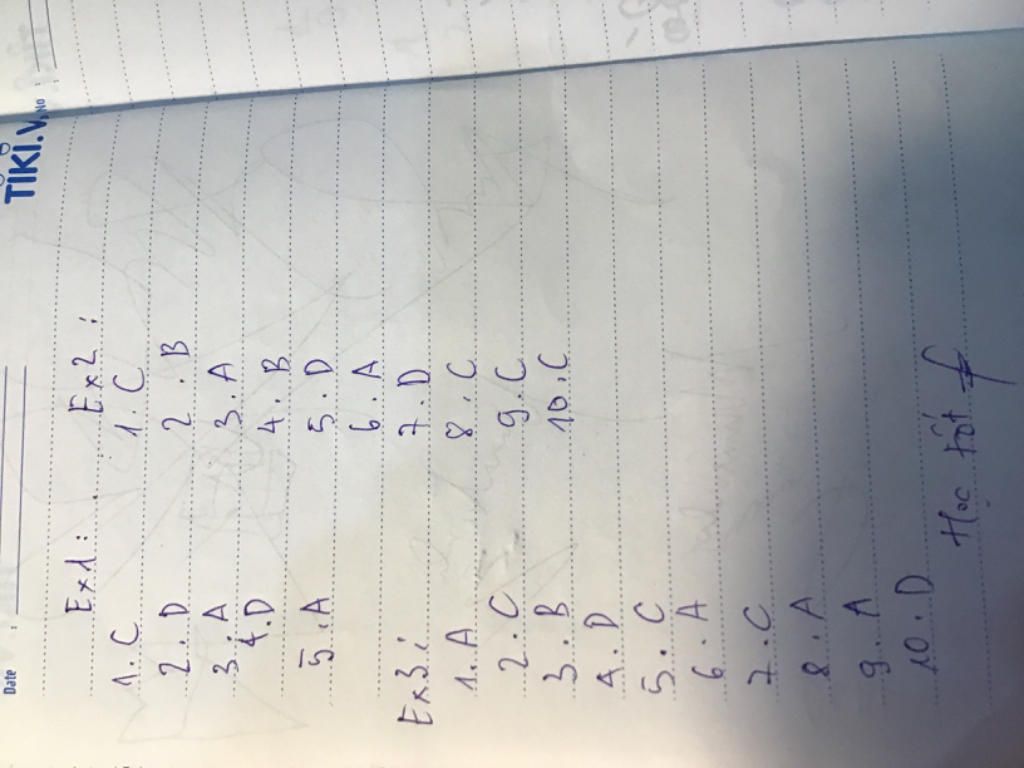 Date :
TIKI.V
No :
Ex1 :
1. C
2. D
3. A
4. D
5. A
Ex2 :
1. C
2. B
3. A
4. B
5. D
6. A
7. D
8. C
9. C
10. C
Ex3 :
1. A
2. C
3. B
4. D
5. C
6. A
7. C
8. A
9. A
10. D
Học tốt